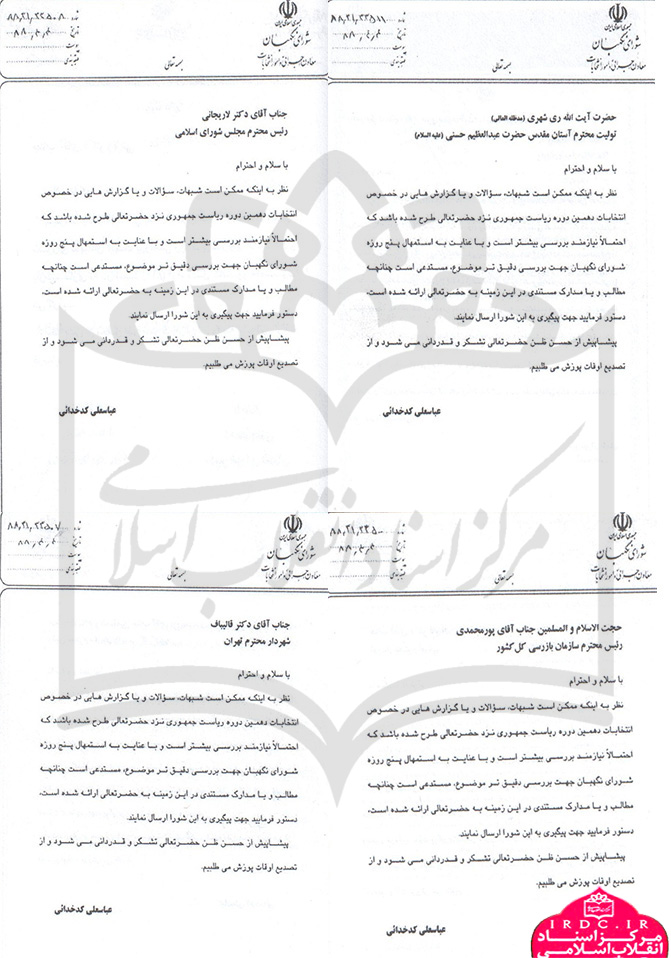 جمهوری اسلامی ایران
شورای نگهبان
معاون اجرائی و امور انتخابات
بسمه تعالی
شماره ۸۸,۲۱,۳۳۵۱۱
تاریخ ۸۸,۴,۴
پیوست
طبقه بندی
حضرت آیت الله ری شهری (مدظله العالی)
تولیت محترم آستان مقدس حضرت عبدالعظیم حسنی (علیه السلام)
با سلام و احترام
نظر به اینکه ممکن است شبهات، سؤالات و یا گزارش هایی در خصوص
انتخابات دهمین دوره ریاست جمهوری نزد حضرتعالی طرح شده باشد که
احتمالاً نیازمند بررسی بیشتر است و با عنایت به استمهال پنج روزه
شورای نگهبان جهت بررسی دقیق تر موضوع، مستدعی است چنانچه
مطالب و یا مدارک مستندی در این زمینه به حضرتعالی ارائه شده است،
دستور فرمایید جهت پیگیری به این شورا ارسال نمایند.
پیشاپیش از حسن ظن حضرتعالی تشکر و قدردانی می شود و از
تصدیع اوقات پوزش می طلبیم.
عباسعلی کدخدائی
جمهوری اسلامی ایران
شورای نگهبان
معاون اجرائی و امور انتخابات
بسمه تعالی
شماره ۸۸,۲۱,۳۳۵۰۸
تاریخ ۸۸,۴,۴
پیوست
طبقه بندی
جناب آقای دکتر لاریجانی
رئیس محترم مجلس شورای اسلامی
با سلام و احترام
نظر به اینکه ممکن است شبهات، سؤالات و یا گزارش هایی در خصوص
انتخابات دهمین دوره ریاست جمهوری نزد حضرتعالی طرح شده باشد که
احتمالاً نیازمند بررسی بیشتر است و با عنایت به استمهال پنج روزه
شورای نگهبان جهت بررسی دقیق تر موضوع، مستدعی است چنانچه
مطالب و یا مدارک مستندی در این زمینه به حضرتعالی ارائه شده است،
دستور فرمایید جهت پیگیری به این شورا ارسال نمایند.
پیشاپیش از حسن ظن حضرتعالی تشکر و قدردانی می شود و از
تصدیع اوقات پوزش می طلبیم.
عباسعلی کدخدائی
مرکز اسناد انقلاب اسلامی
جمهوری اسلامی ایران
شورای نگهبان
معاون اجرائی و امور انتخابات
بسمه تعالی
شماره
تاریخ ۸۸,۴,۴
پیوست
طبقه بندی
حجت الاسلام و المسلمین جناب آقای پورمحمدی
رئیس محترم سازمان بازرسی کل کشور
با سلام و احترام
نظر به اینکه ممکن است شبهات، سؤالات و یا گزارش هایی در خصوص
انتخابات دهمین دوره ریاست جمهوری نزد حضرتعالی طرح شده باشد که
احتمالاً نیازمند بررسی بیشتر است و با عنایت به استمهال پنج روزه
شورای نگهبان جهت بررسی دقیق تر موضوع، مستدعی است چنانچه
مطالب و یا مدارک مستندی در این زمینه به حضرتعالی ارائه شده است،
دستور فرمایید جهت پیگیری به این شورا ارسال نمایند.
پیشاپیش از حسن ظن حضرتعالی تشکر و قدردانی می شود و از
تصدیع اوقات پوزش می طلبیم.
عباسعلی کدخدائی
جمهوری اسلامی ایران
شورای نگهبان
معاون اجرائی و امور انتخابات
بسمه تعالی
شماره ۸۸,۲۱,۳۳۵۰۷
تاریخ ۸۸,۴,۴
پیوست
طبقه بندی
جناب آقای دکتر قالیباف
شهردار محترم تهران
با سلام و احترام
نظر به اینکه ممکن است شبهات، سؤالات و یا گزارش هایی در خصوص
انتخابات دهمین دوره ریاست جمهوری نزد حضرتعالی طرح شده باشد که
احتمالاً نیازمند بررسی بیشتر است و با عنایت به استمهال پنج روزه
شورای نگهبان جهت بررسی دقیق تر موضوع، مستدعی است چنانچه
مطالب و یا مدارک مستندی در این زمینه به حضرتعالی ارائه شده است،
دستور فرمایید جهت پیگیری به این شورا ارسال نمایند.
پیشاپیش از حسن ظن حضرتعالی تشکر و قدردانی می شود و از
تصدیع اوقات پوزش می طلبیم.
عباسعلی کدخدائی
IRDC.IR
مرکز اسناد
انقلاب اسلامی